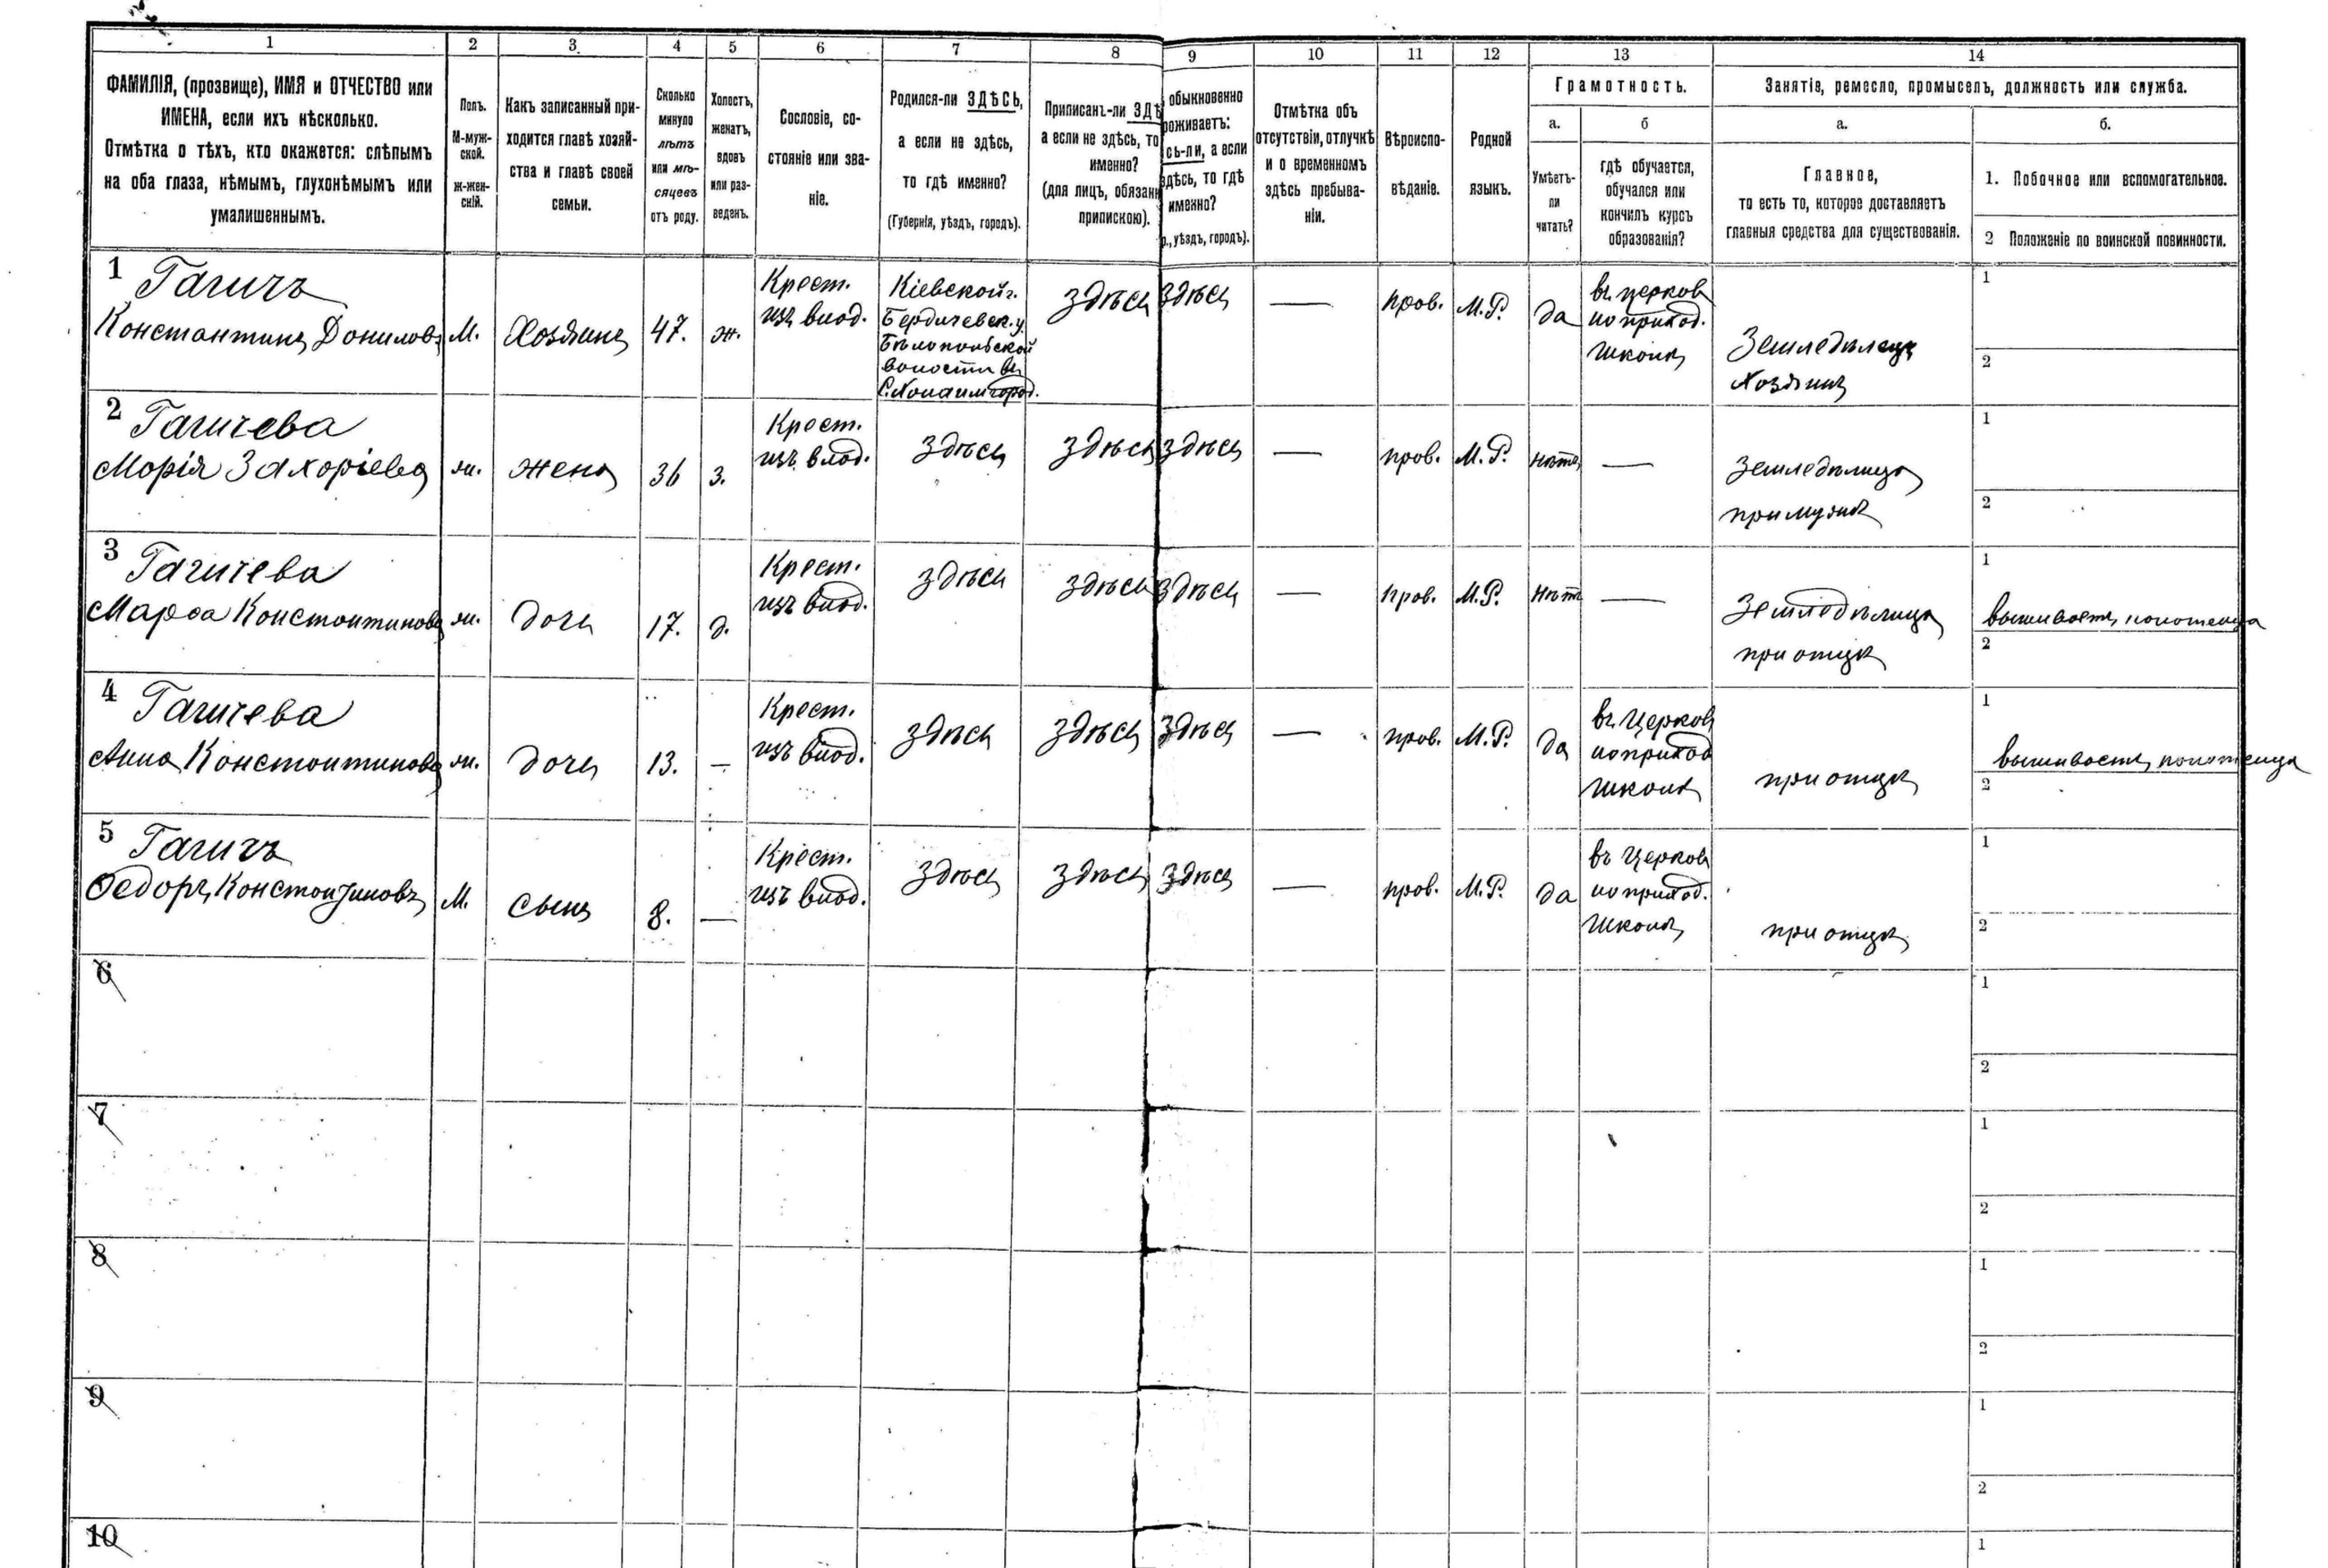 1 2 3 4 5 6 7 8 9 10 11 12 13 14
ФАМИЛІЯ, (прозвище), ИМЯ и ОТЧЕСТВО или
ИМЕНА, если ихъ нѣсколько.
Отмѣтка о тѣхъ, кто окажется: слѣпымъ
на оба глаза, нѣмымъ, глухонѣмымъ или
умалишеннымъ.
Полъ.
М-муж-
ской.
ж-жен-
скій.
Какъ записанный при-
ходится главѣ хозяй-
ства и главѣ своей
семьи.
Сколько
минуло
лѣтъ
или мѣ-
сяцевъ
отъ роду.
Холостъ,
женатъ,
вдовъ
или раз-
веденъ.
Сословіе, со-
стояніе или зва-
ніе.
Родился-ли ЗДѢСЬ,
а если не здѣсь,
то гдѣ именно?
(Губернія, уѣздъ, городъ).
Приписанъ-ли ЗДѢ
а если не здѣсь, то
именно?
(для лицъ, обязанн
припискою).
обыкновенно
роживаетъ:
сь-ли, а если
здѣсь, то гдѣ
именно?
р., уѣздъ, городъ).
Отмѣтка объ
отсутствіи, отлучкѣ
и о временномъ
здѣсь пребыва-
ніи.
Вѣроиспо-
вѣданіе.
Родной
языкъ.
Грамотность.
а.
Умѣетъ-
ли
читать?
б
гдѣ обучается,
обучался или
кончилъ курсъ
образованія?
Занятія, ремесло, промыселъ, должность или служба.
а.
Главное,
то есть то, которое доставляетъ
главныя средства для существованія.
б.
1. Побочное или вспомогательное.
2 Положеніе по воинской повинности.
1 Гагичъ
Константинъ Даниловъ
М.
Хозяинъ
47.
ж.
Крест.
изъ влад.
Кіевской г.
Бердичевск. у.
Бѣлопольской
волости въ
здѣсь
здѣсь
—
прав.
М.Р.
да
въ церков
но приход.
школѣ
Земледѣлецъ
хозяинъ
1
2
2 Гагичева
Марія Захаріева
ж.
жена
36
з.
Крест.
изъ влад.
здѣсь
здѣсь
здѣсь
—
прав.
М.Р.
нѣтъ
—
земледѣлица
при мужѣ
1
2
3 Гагичева
Марѳа Константинова
ж.
дочь
17.
д.
Крест.
изъ влад.
здѣсь
здѣсь
здѣсь
—
прав.
М.Р.
нѣтъ
—
Земледѣлица
при отцѣ
1
вышиваетъ полотенца
2
4 Гагичева
Анна Константинова
ж.
дочь
13.
—
Крест.
изъ влад.
здѣсь
здѣсь
здѣсь
—
прав.
М.Р.
да
въ церков
но приход
школѣ
при отцѣ
1
вышиваетъ полотенца
2
5 Гагичъ
Ѳедоръ Константиновъ
М.
сынъ
8.
—
Крест.
изъ влад.
здѣсь
здѣсь
здѣсь
—
прав.
М.Р.
да
въ церков
но приход.
школѣ
при отцѣ
1
2
6
1
2
7
1
2
8
1
2
9
1
2
10
1